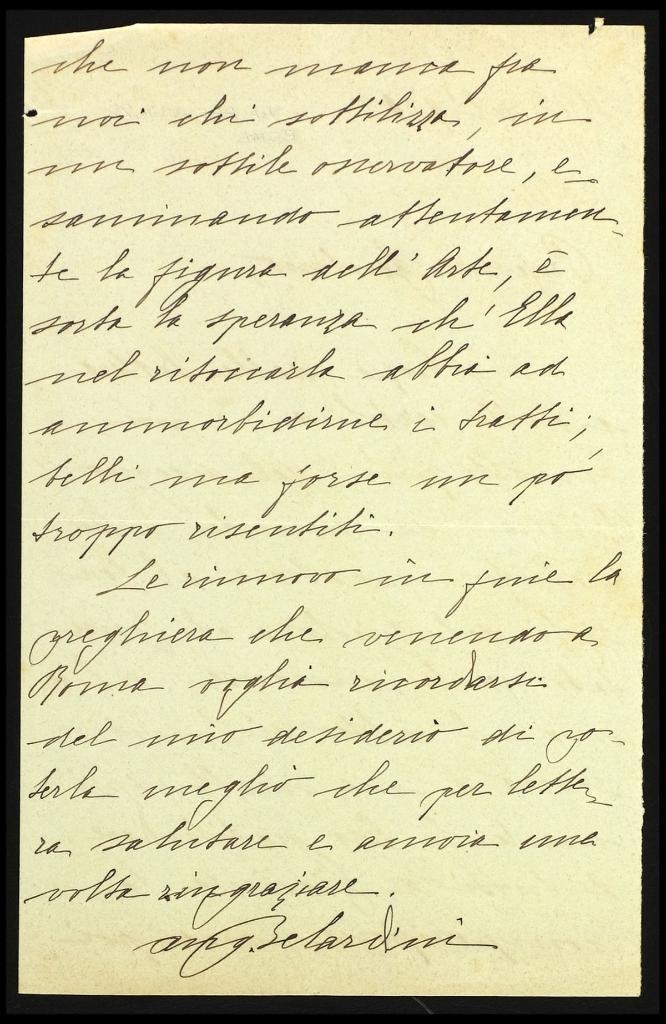 che non manca fra
noi chi sottilizza, in
un sottile osservatore, e-
saminando attentamen-
te la figura dell' Arte, è
sorta la speranza ch' Ella
nel ritoccarla abbia ad
ammorbidirne i tratti;
belli ma forse un pò
troppo risentiti.
Le rinnovo in fine la
preghiera che venendo a
Roma voglia ricordarsi
del mio desiderio di po-
terla meglio che per lette-
ra salutare e ancora una
volta ringraziare.
Ang. Belardini